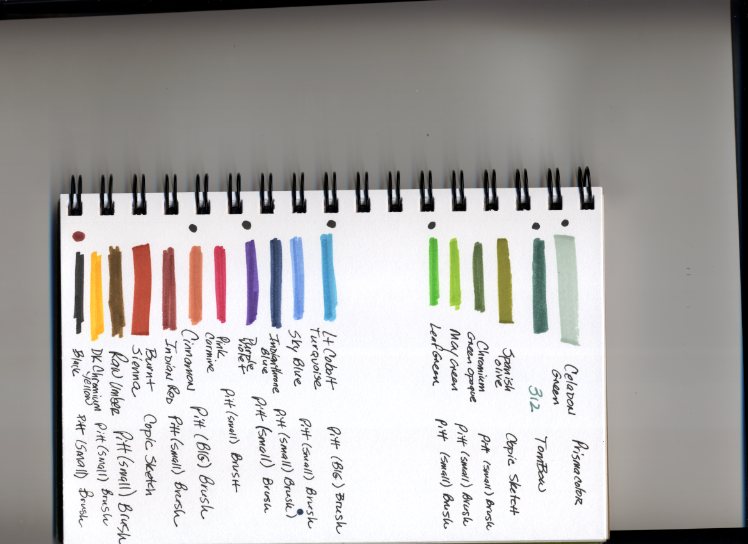 Celadon Green Prismacolor
312 Tombow
Spanish Olive Copic Sketch
Chromium Green Opaque Pitt (small) Brush
May Green Pitt (small) Brush
Leaf Green Pitt (small) Brush
Lt Cobalt Turquoise Pitt (BIG) Brush
Sky Blue Pitt (small) Brush
Indianthrone Blue Pitt (small) Brush)
Purple Violet Pitt (small) Brush
Pink Carmine Pitt (small) Brush
Cinnamon Pitt (BIG) Brush
Indian Red Pitt (small) Brush
Burnt Sienna Copic Sketch
Raw Umber Pitt (small) Brush
Dk Chromium Yellow Pitt (small) Brush
Black Pitt (small) Brush